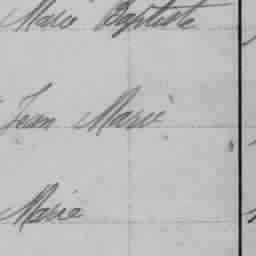 Marie Baptiste
Jean Marie
Marie